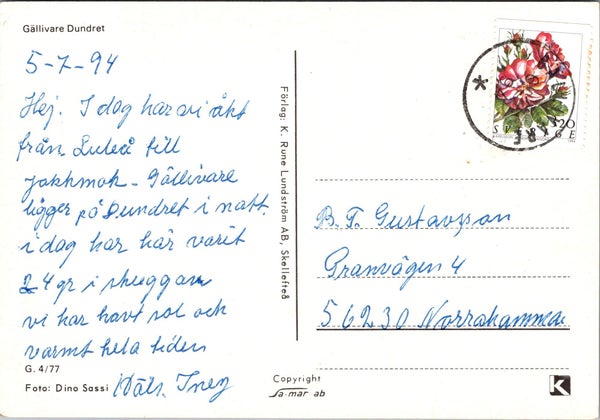 Gällivare Dundret
5-7-94
Hej. I dag har vi åkt
från Luleå till
Jokkmok - Gällivare
ligger på Dundret i natt.
i dag har här varit
24 gr i skuggan
vi har haft sol och
varmt hela tiden
G. 4/77
Foto: Dino Sassi
Häls. Iney
Förlag: K. Rune Lundström AB, Skellefteå
Copyright
Sa-mar ab
SVERIGE
20
B. T. Gustavsson
Granvägen 4
56230 Norrahammar
K